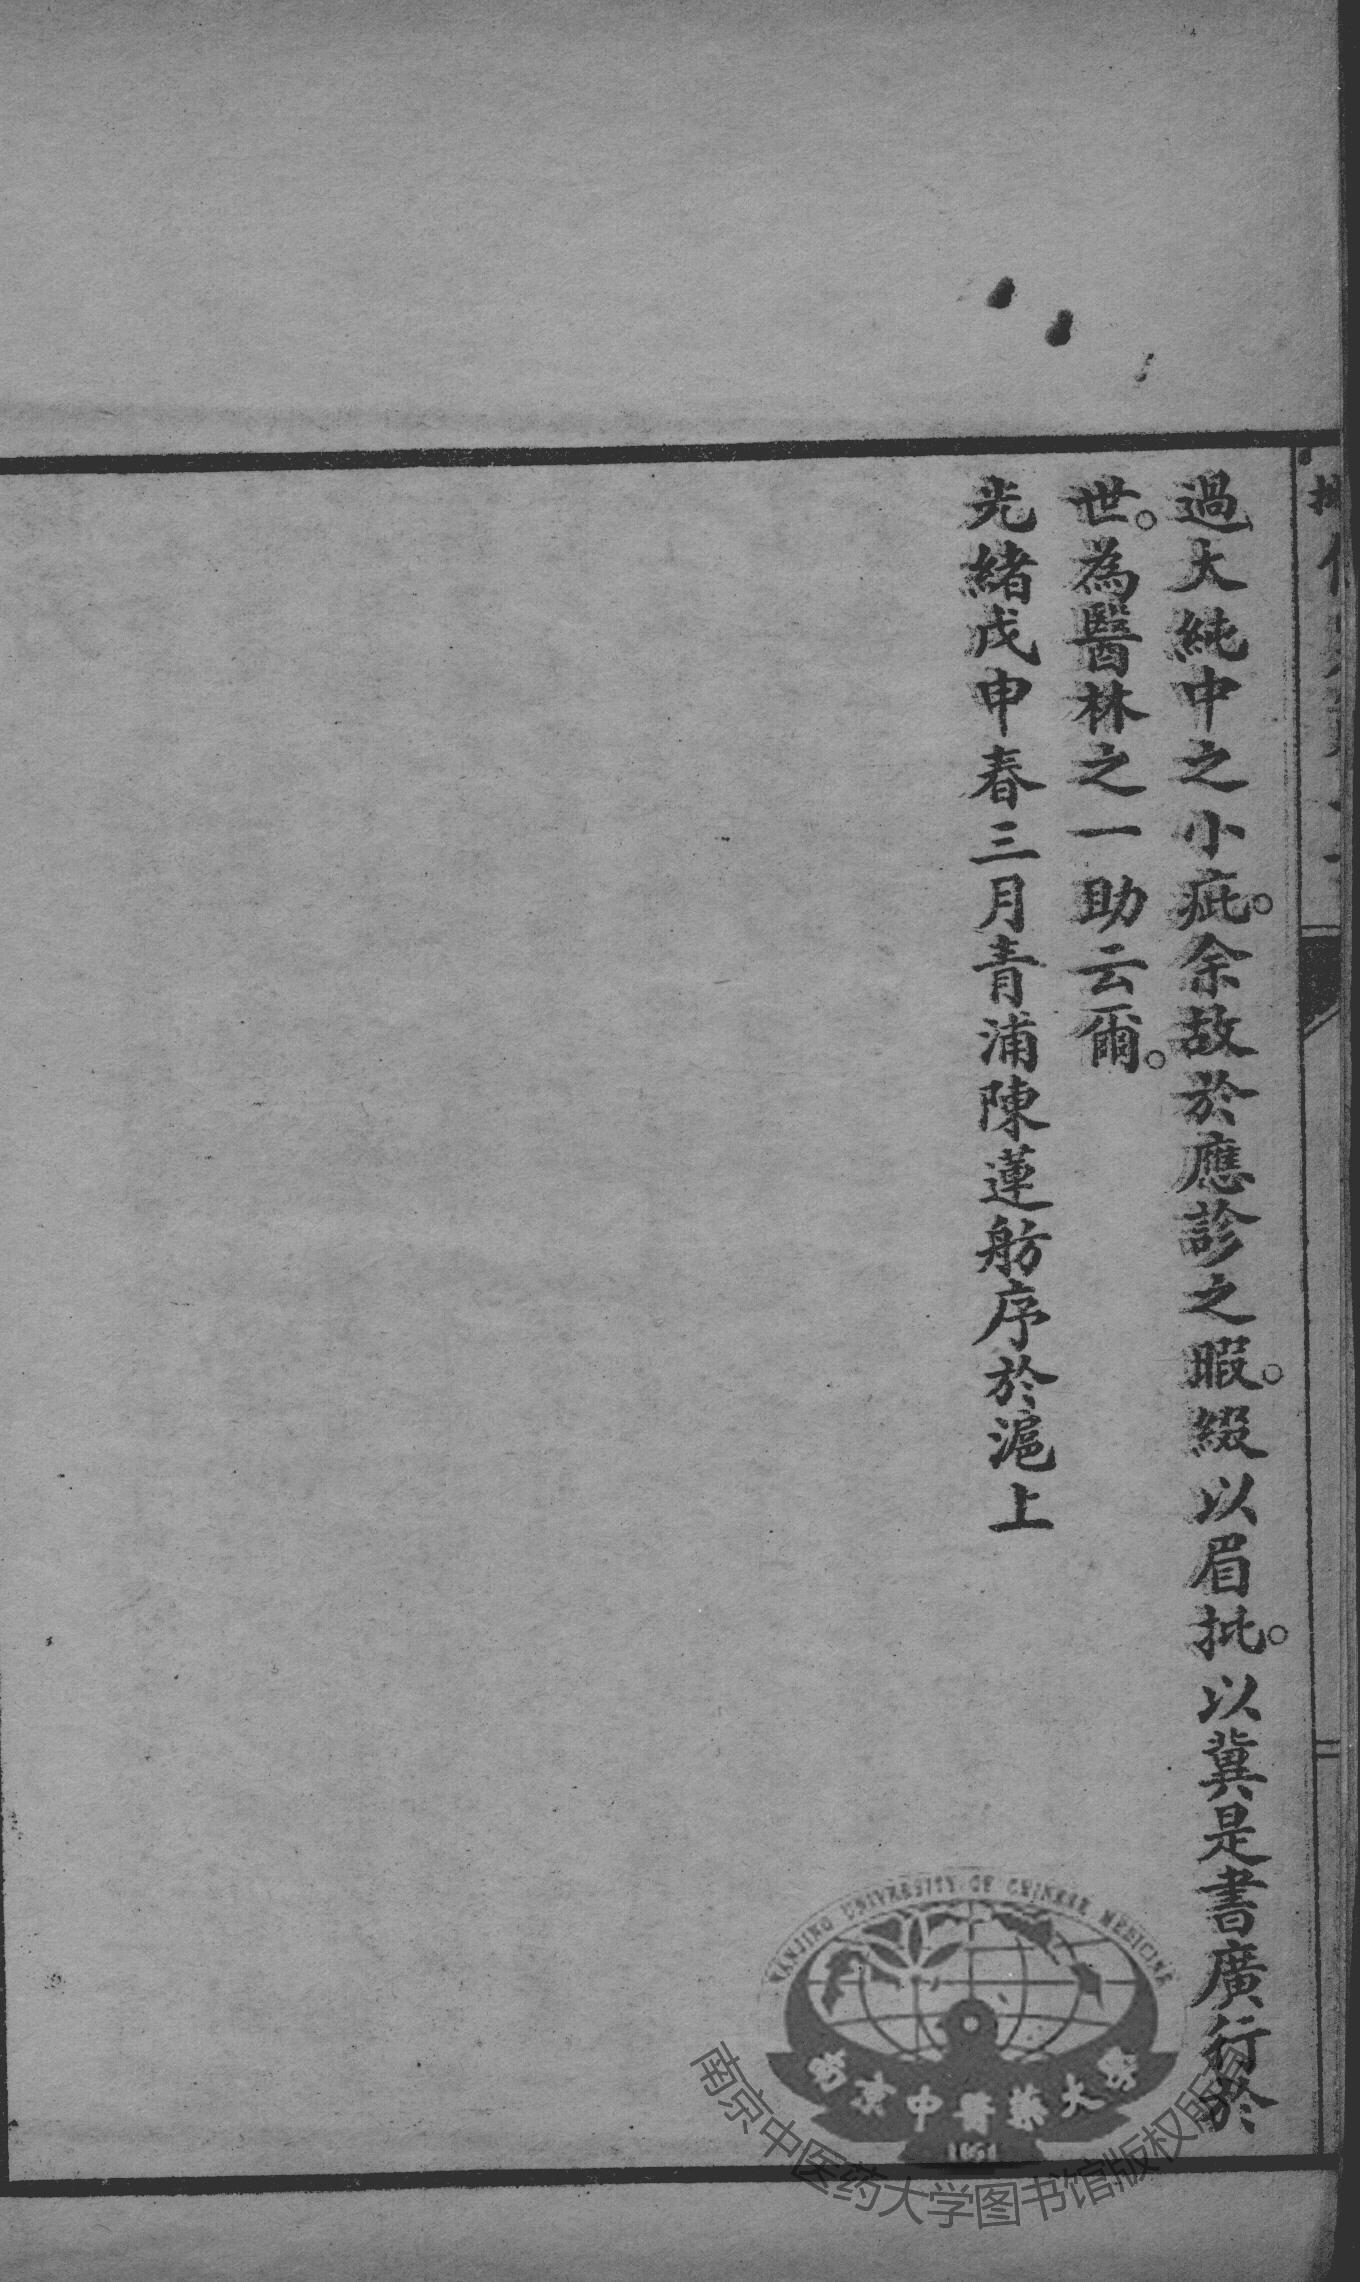 過大純中之小疵。余故於應診之暇。綴以眉批。以冀是書廣行於
世。為醫林之一助云爾。
光緒戊申春三月青浦陳蓮舫序於滬上
NANJING UNIVERSITY OF CHINESE MEDICINE
南京中醫藥大學
1954
南京中医药大学图书馆版权所有